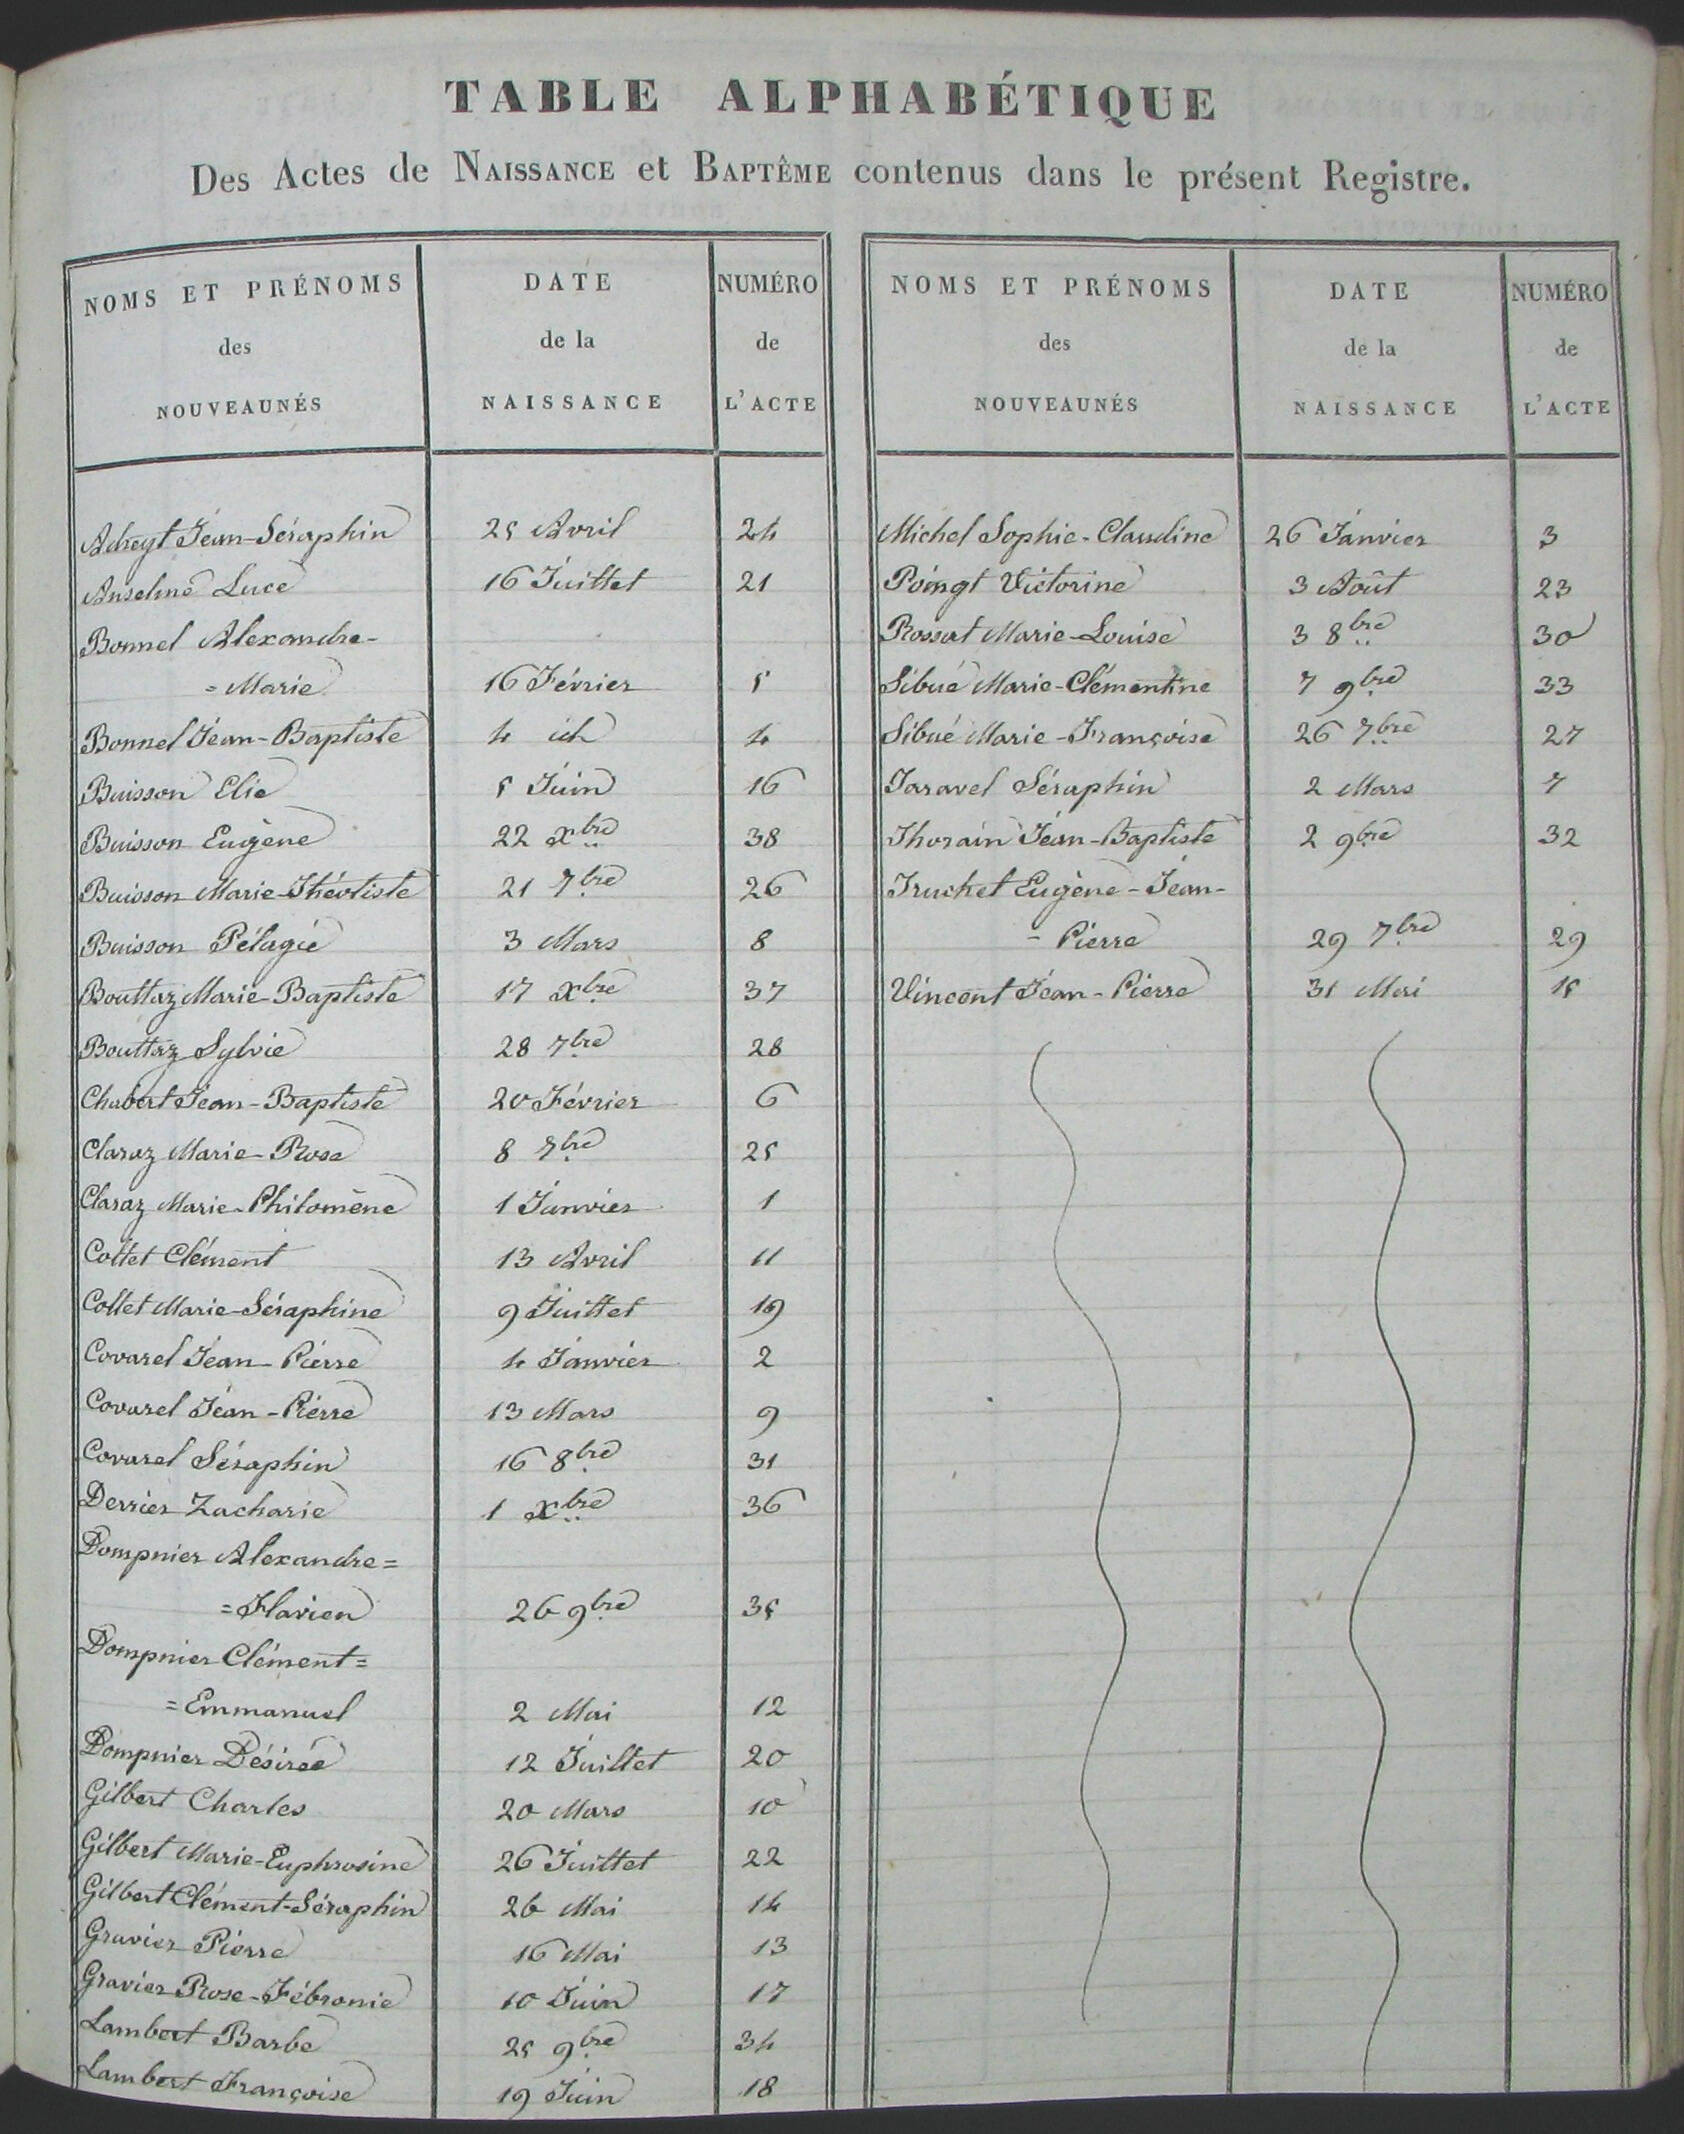 TABLE ALPHABÉTIQUE
Des Actes de NAISSANCE et BAPTÊME contenus dans le présent Registre.
NOMS ET PRÉNOMS
des
NOUVEAUNÉS
DATE
de la
NAISSANCE
NUMÉRO
de
L'ACTE
Adreyt Jean-Séraphin 25 Avril 24
Anselme Luce 16 Juillet 21
Bonnel Alexandre-
=Marie 16 Février 5
Bonnel Jean-Baptiste 4 id 4
Buisson Elie 5 Juin 16
Buisson Eugène 22 Xbre 38
Buisson Marie-Théotiste 21 7bre 26
Buisson Pélagie 3 Mars 8
Bouttaz Marie-Baptiste 17 Xbre 37
Bouttaz Sylvie 28 7bre 28
Chabert Jean-Baptiste 20 Février 6
Claraz Marie-Rose 8 7bre 25
Claraz Marie-Philomène 1 Janvier 1
Collet Clément 13 Avril 11
Collet Marie-Séraphine 9 Juillet 19
Covarel Jean-Pierre 4 Janvier 2
Covarel Jean-Pierre 13 Mars 9
Covarel Séraphin 16 8bre 31
Derrier Zacharie 1 Xbre 36
Dompnier Alexandre=
=Flavien 26 9bre 35
Dompnier Clément=
=Emmanuel 2 Mai 12
Dompnier Désirée 12 Juillet 20
Gilbert Charles 20 Mars 10
Gilbert Marie-Euphrosine 26 Juillet 22
Gilbert Clément-Séraphin 26 Mai 14
Gravier Pierre 16 Mai 13
Gravier Rose-Fébronie 10 Juin 17
Lambert Barbe 25 9bre 34
Lambert Françoise 19 Juin 18
NOMS ET PRÉNOMS
des
NOUVEAUNÉS
DATE
de la
NAISSANCE
NUMÉRO
de
L'ACTE
Michel Sophie-Claudine 26 Janvier 3
Poingt Victorine 3 Août 23
Rossat Marie-Louise 3 8bre 30
Sibué Marie-Clémentine 7 9bre 33
Sibué Marie-Françoise 26 7bre 27
Taravel Séraphin 2 Mars 7
Thorain Jean-Baptiste 2 9bre 32
Truchet Eugène-Jean-
-Pierre 29 7bre 29
Vincent Jean-Pierre 31 Mai 15